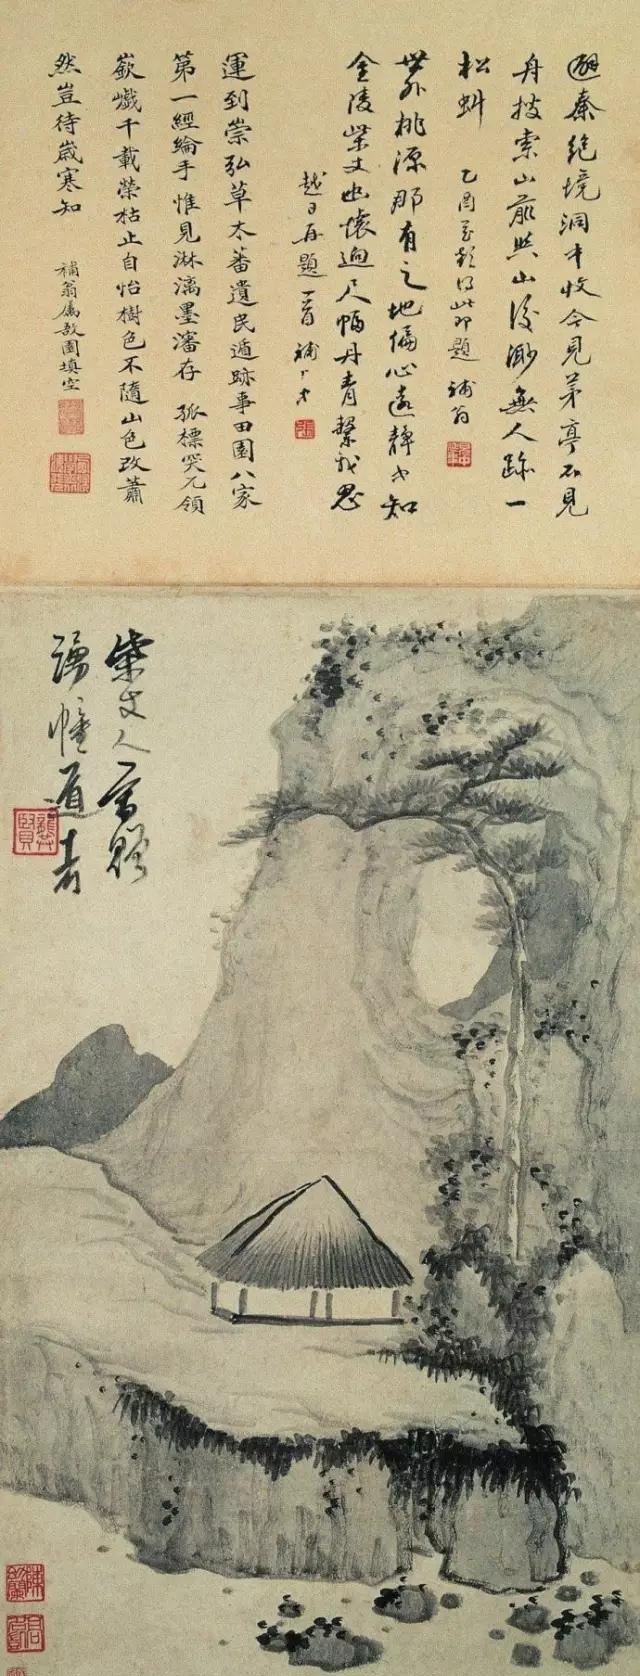 避秦絶境洞中收今見茅亭不見
舟搜索山前與山後渺無人跡一
松虯 乙酉 題 補翁
世外桃源那有之地偏心遠靜方知
金陵柴丈幽懷迥尺幅丹青繫我思
越日再題一首 補
運到崇弘草木蕃遺民遁跡事田園八家
第一經綸手惟見淋漓墨瀋存 孤標突兀領
嶔巇千載榮枯止自怡樹色不隨山色改蕭
然豈待歲寒知
補翁屬敖園填空
柴丈人寫贈
道者
龔賢